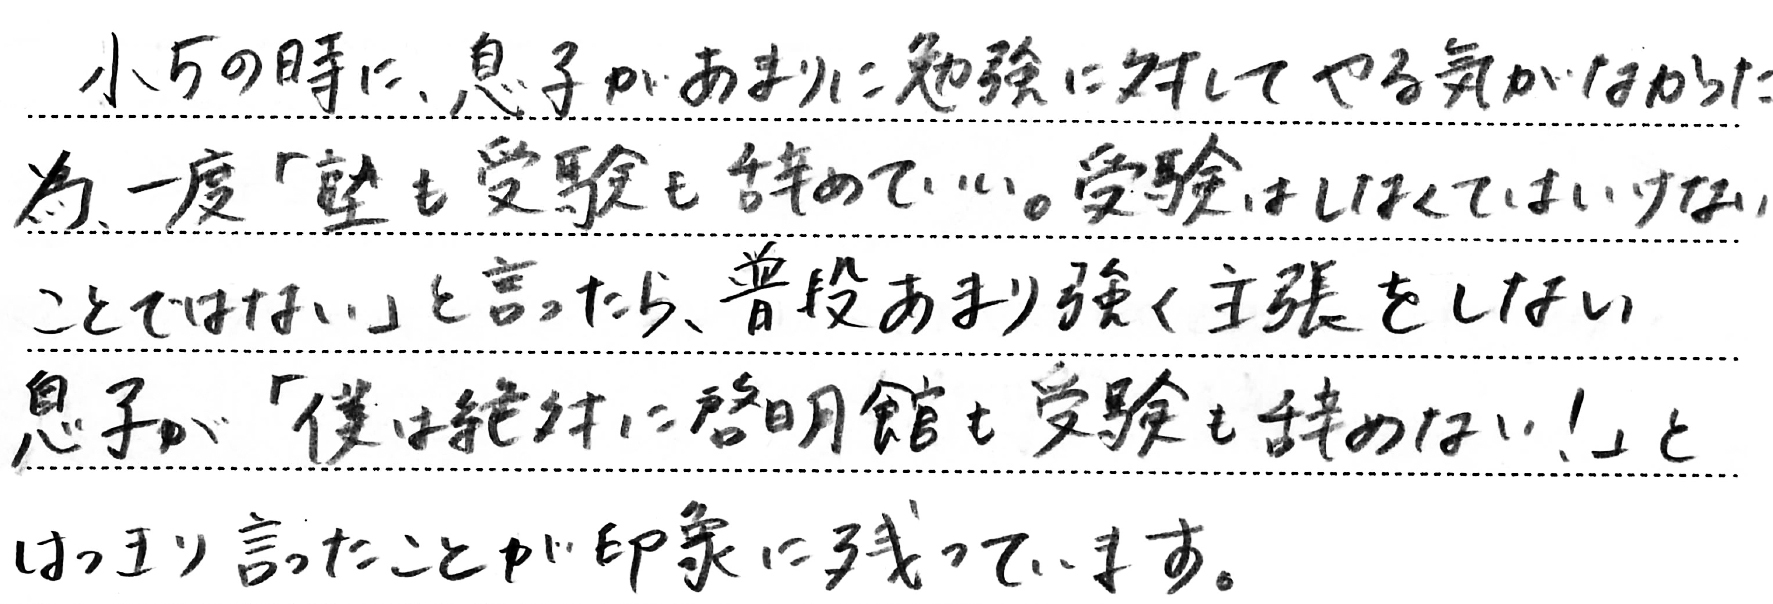 小5の時に、息子があまりに勉強に対してやる気がなかった
為、一度「塾も受験も辞めていい。受験はしなくてはいけない
ことではない」と言ったら、普段あまり強く主張をしない
息子が「僕は絶対に啓明館も受験も辞めない!」と
はっきり言ったことが印象に残っています。